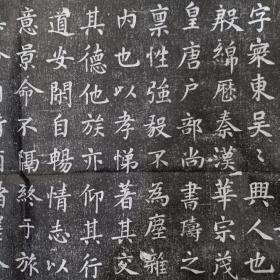 字寀東吴〻興人也
殷綿歷秦漢華宗茂
皇唐户部尚書儔之
禀性強毅不為塵雜
内也以孝悌著其交
其德他族亦仰其行
道安閑自暢情志以
意景命不隔終于旅